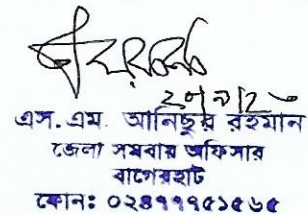 এস. এম. আনিছুর রহমান
জেলা সমবায় অফিসার
বাগেরহাট
ফোনঃ ০২৪৭৭৭৫১৫৬৫